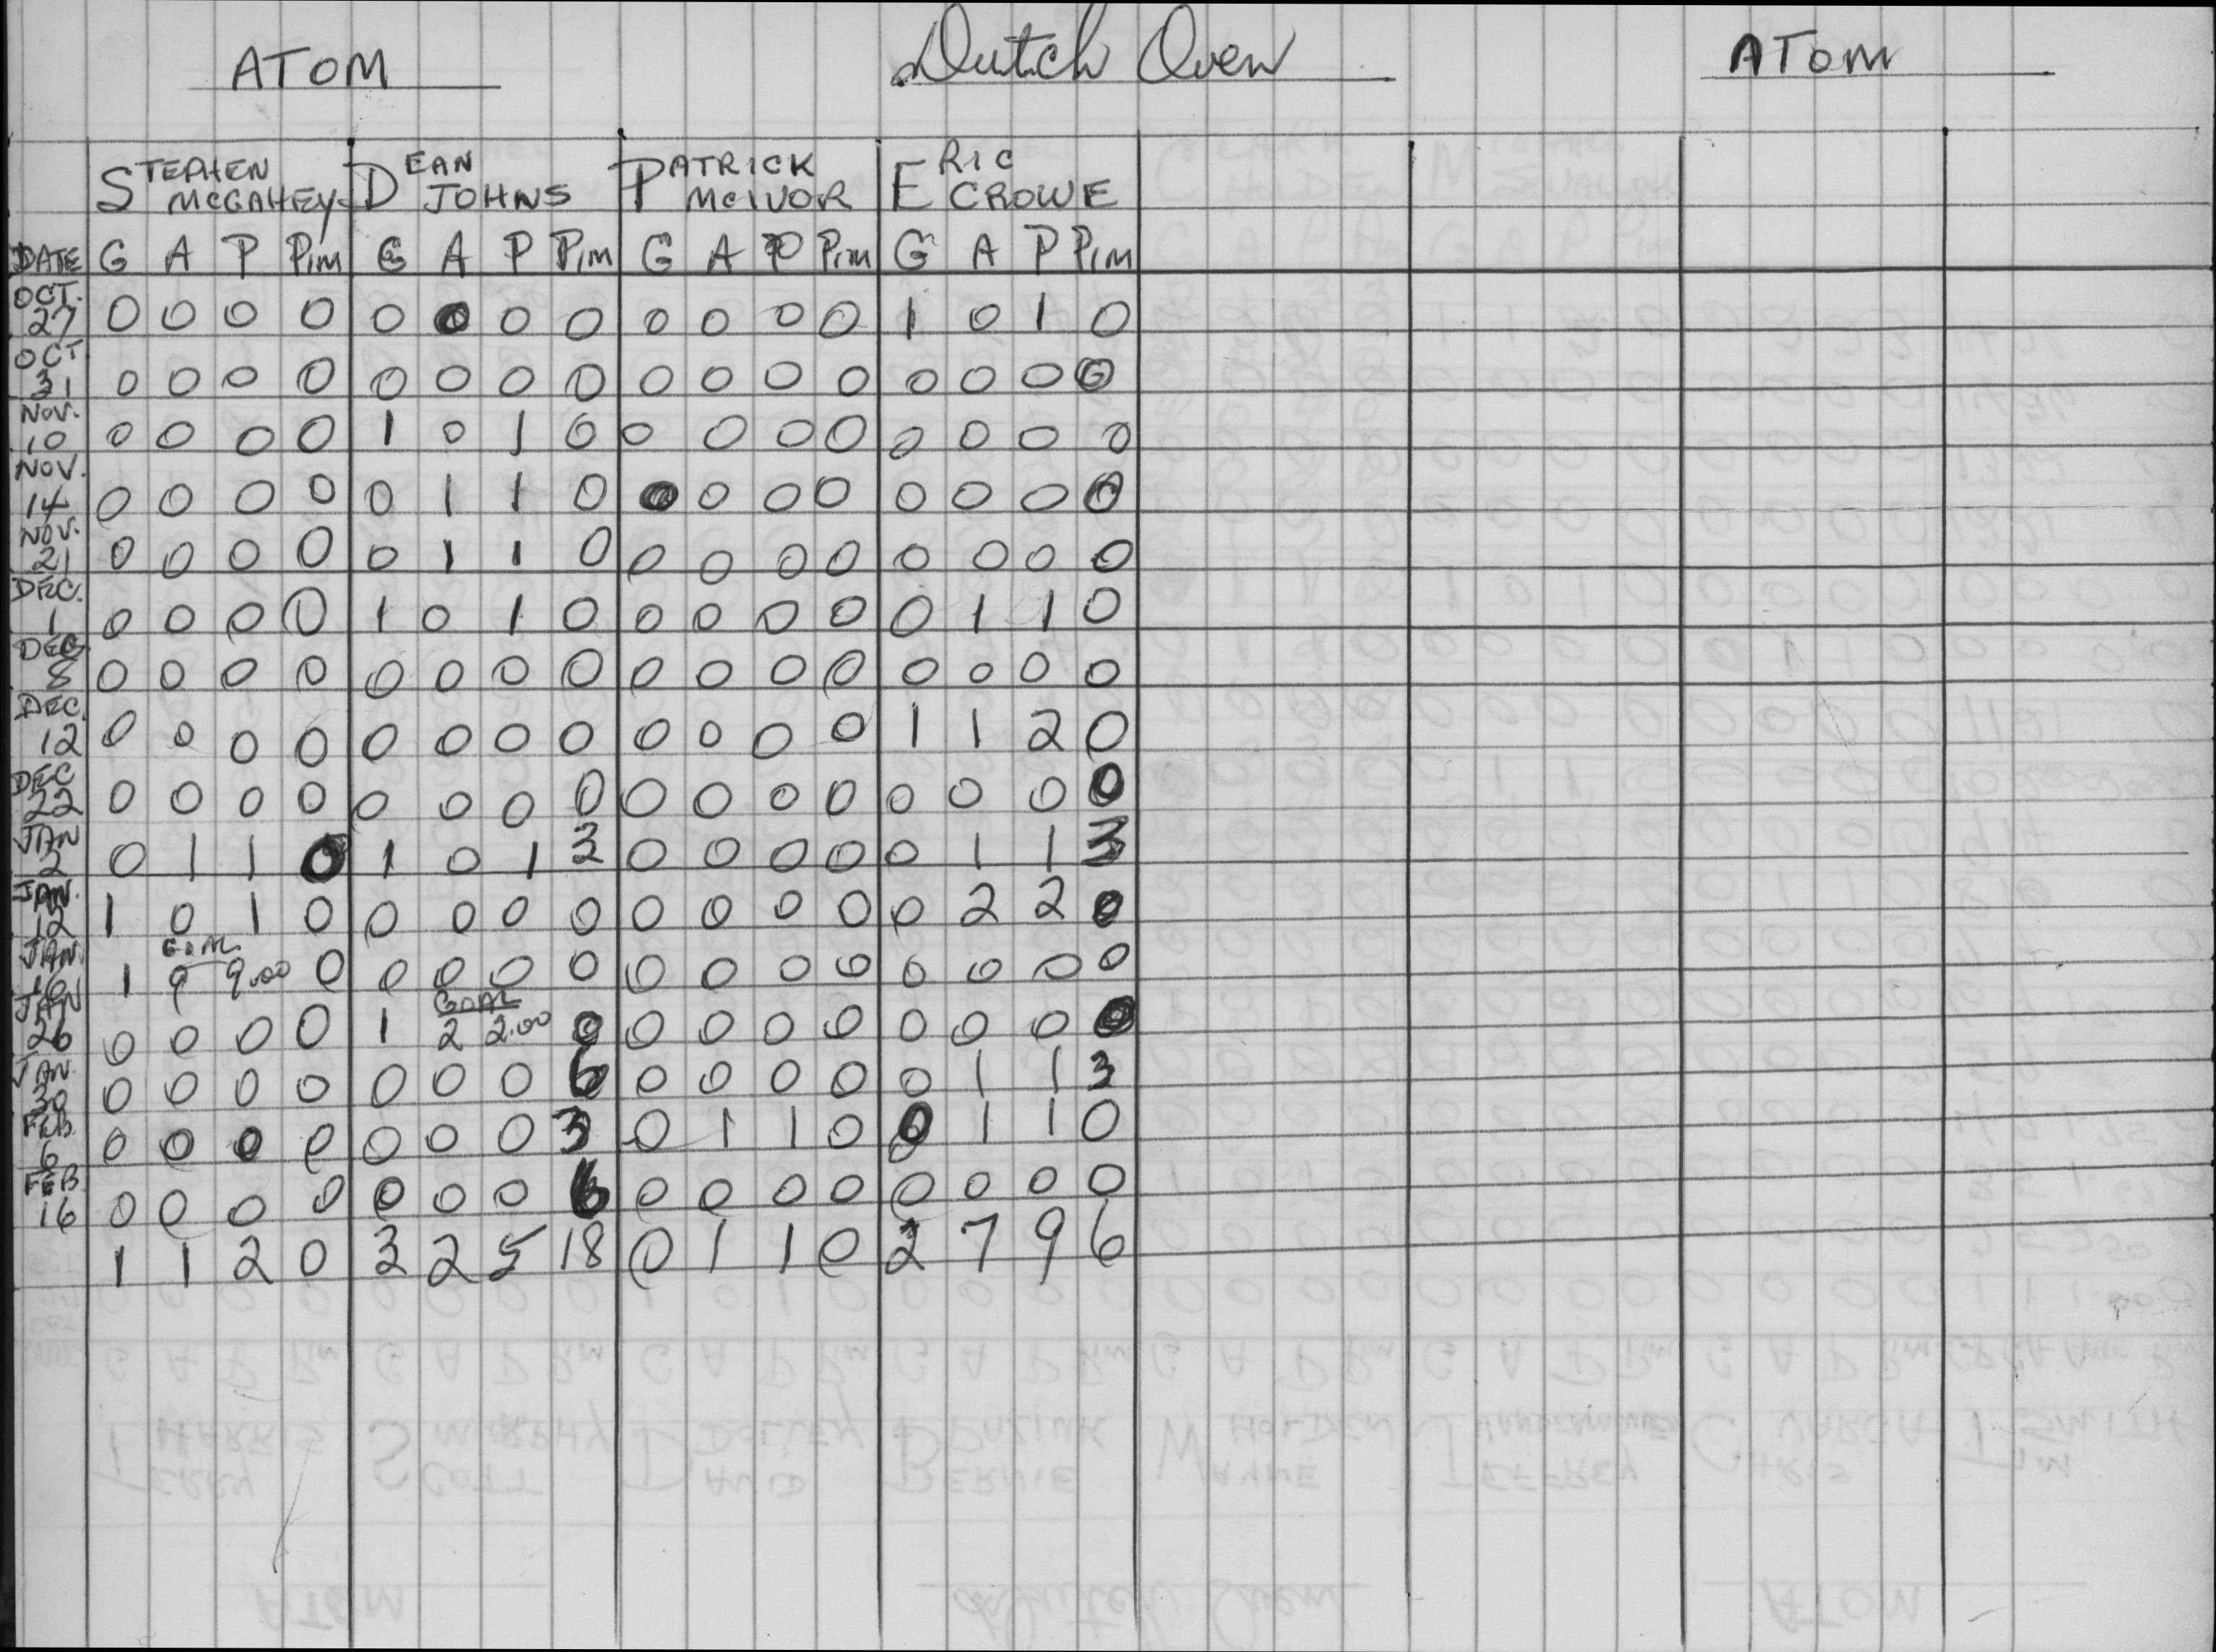 ATOM Dutch Oven ATOM
STEPHEN MCGAHEY DEAN JOHNS PATRICK MCIVOR ERIC CROWE
DATE G A P Pim G A P Pim G A P Pim G A P Pim
OCT. 27 0 0 0 0 0 0 0 0 0 0 0 0 1 0 1 0
OCT 31 0 0 0 0 0 0 0 0 0 0 0 0 0 0 0 0
NOV. 10 0 0 0 0 1 0 1 0 0 0 0 0 0 0 0 0
NOV. 14 0 0 0 0 0 1 1 0 0 0 0 0 0 0 0 0
NOV. 21 0 0 0 0 0 1 1 0 0 0 0 0 0 0 0 0
DEC. 1 0 0 0 0 1 0 1 0 0 0 0 0 0 1 1 0
DEC 8 0 0 0 0 0 0 0 0 0 0 0 0 0 0 0 0
DEC. 12 0 0 0 0 0 0 0 0 0 0 0 0 1 1 2 0
DEC 22 0 0 0 0 0 0 0 0 0 0 0 0 0 0 0 0
JAN 2 0 1 1 0 1 0 1 3 0 0 0 0 0 1 1 3
JAN. 12 1 0 1 0 0 0 0 0 0 0 0 0 0 2 2 0
JAN. 16 1 GOAL 9 9.00 0 0 0 0 0 0 0 0 0 0 0 0 0
JAN 26 0 0 0 0 1 GOAL 2 2.00 0 0 0 0 0 0 0 0 0
JAN. 30 0 0 0 0 0 0 0 6 0 0 0 0 0 1 1 3
FEB. 6 0 0 0 0 0 0 0 3 0 1 1 0 0 1 1 0
FEB. 16 0 0 0 0 0 0 0 6 0 0 0 0 0 0 0 0
1 1 2 0 3 2 5 18 0 1 1 0 2 7 9 6